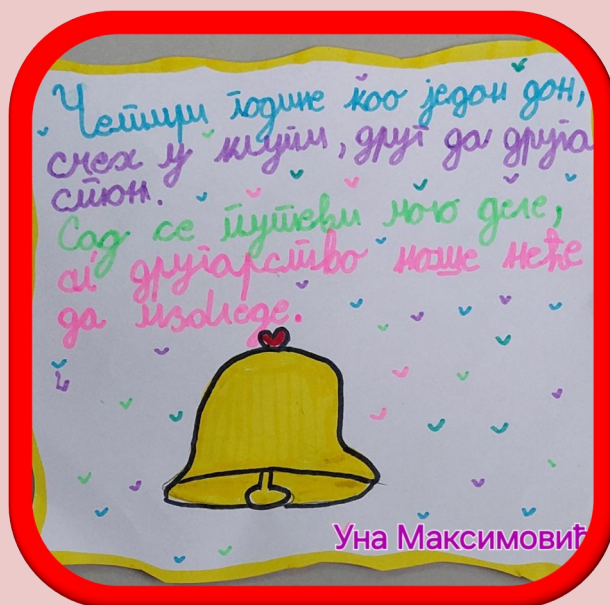 Четири године као један дан,
смех у клупи, друг до друга
стон.
Сад се путеви мало деле,
ал' другарство наше неће
да избледе.
Уна Максимовић